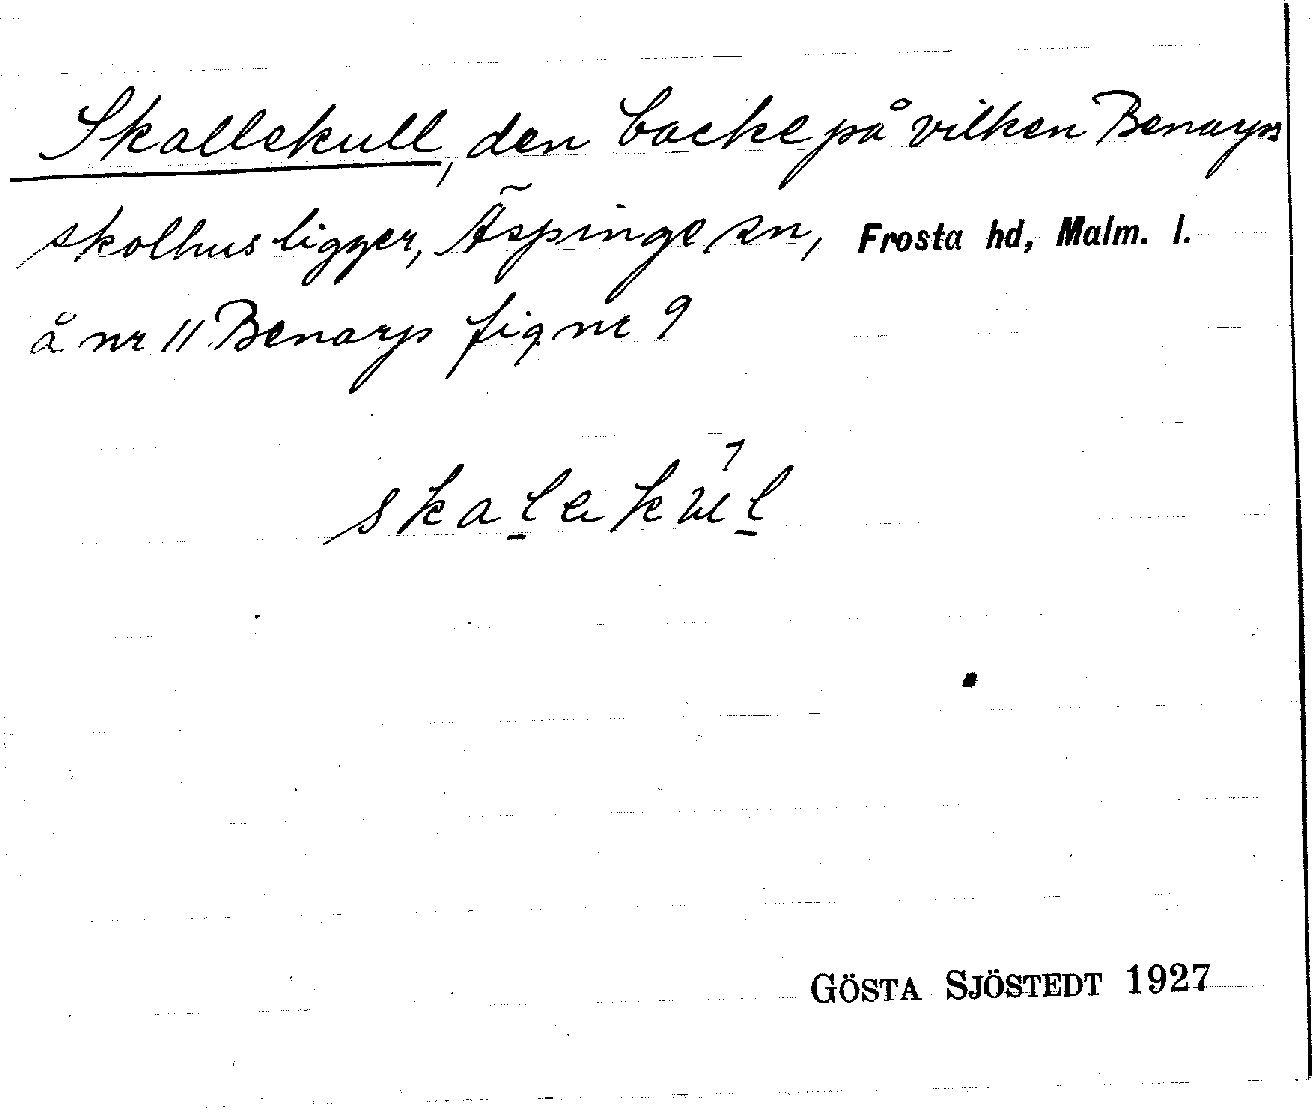 Skallekull, den backe på vilken Benarps
skolhus ligger, Äspinge sn, Frosta hd, Malm. l.
å nr 11 Benarp fig nr 9
skalekul
GÖSTA SJÖSTEDT 1927